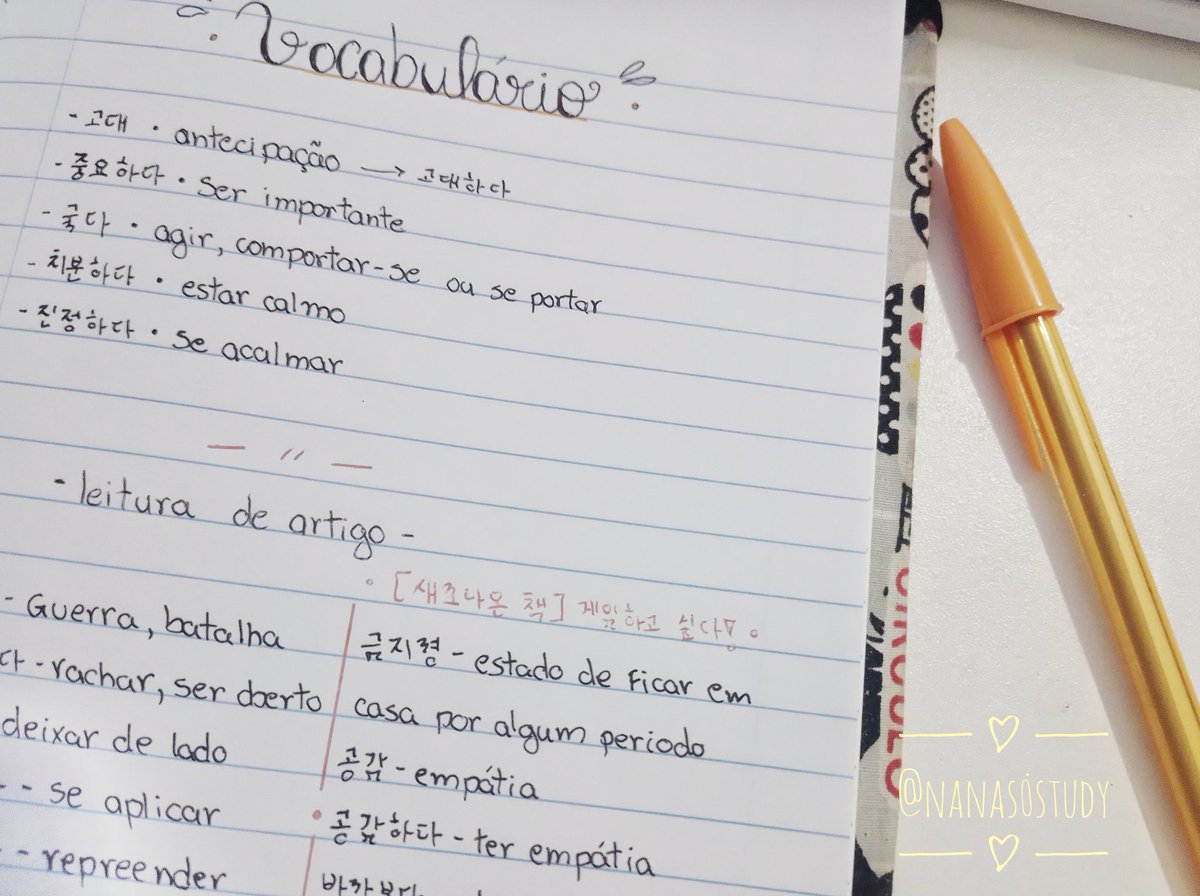 Vocabulário
- 고대 · antecipação → 고대하다
- 중요하다 · ser importante
- 굴다 · agir, comportar-se ou se portar
- 치분하다 · estar calmo
- 진정하다 · se acalmar
— " —
- leitura de artigo -
[새로나온 책] 게임하고 싶다
- Guerra, batalha
다 - rachar, ser aberto
deixar de lado
- se aplicar
- repreender
금지령 - estado de ficar em
casa por algum periodo
공감 - empátia
공감하다 - ter empátia
CÍRCULO
@NANASOSTUDY